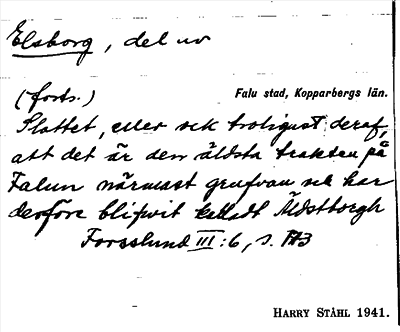 Elsborg, del av
(forts.)
Falu stad, Kopparbergs län.
Slottet, eller ock troligast deraf,
att det är den äldsta trakten på
Falun närmast grufvan, och har
derföre blifwit kalladt Äldstborgh
Forsslund III:6, s. 173
HARRY STÅHL 1941.